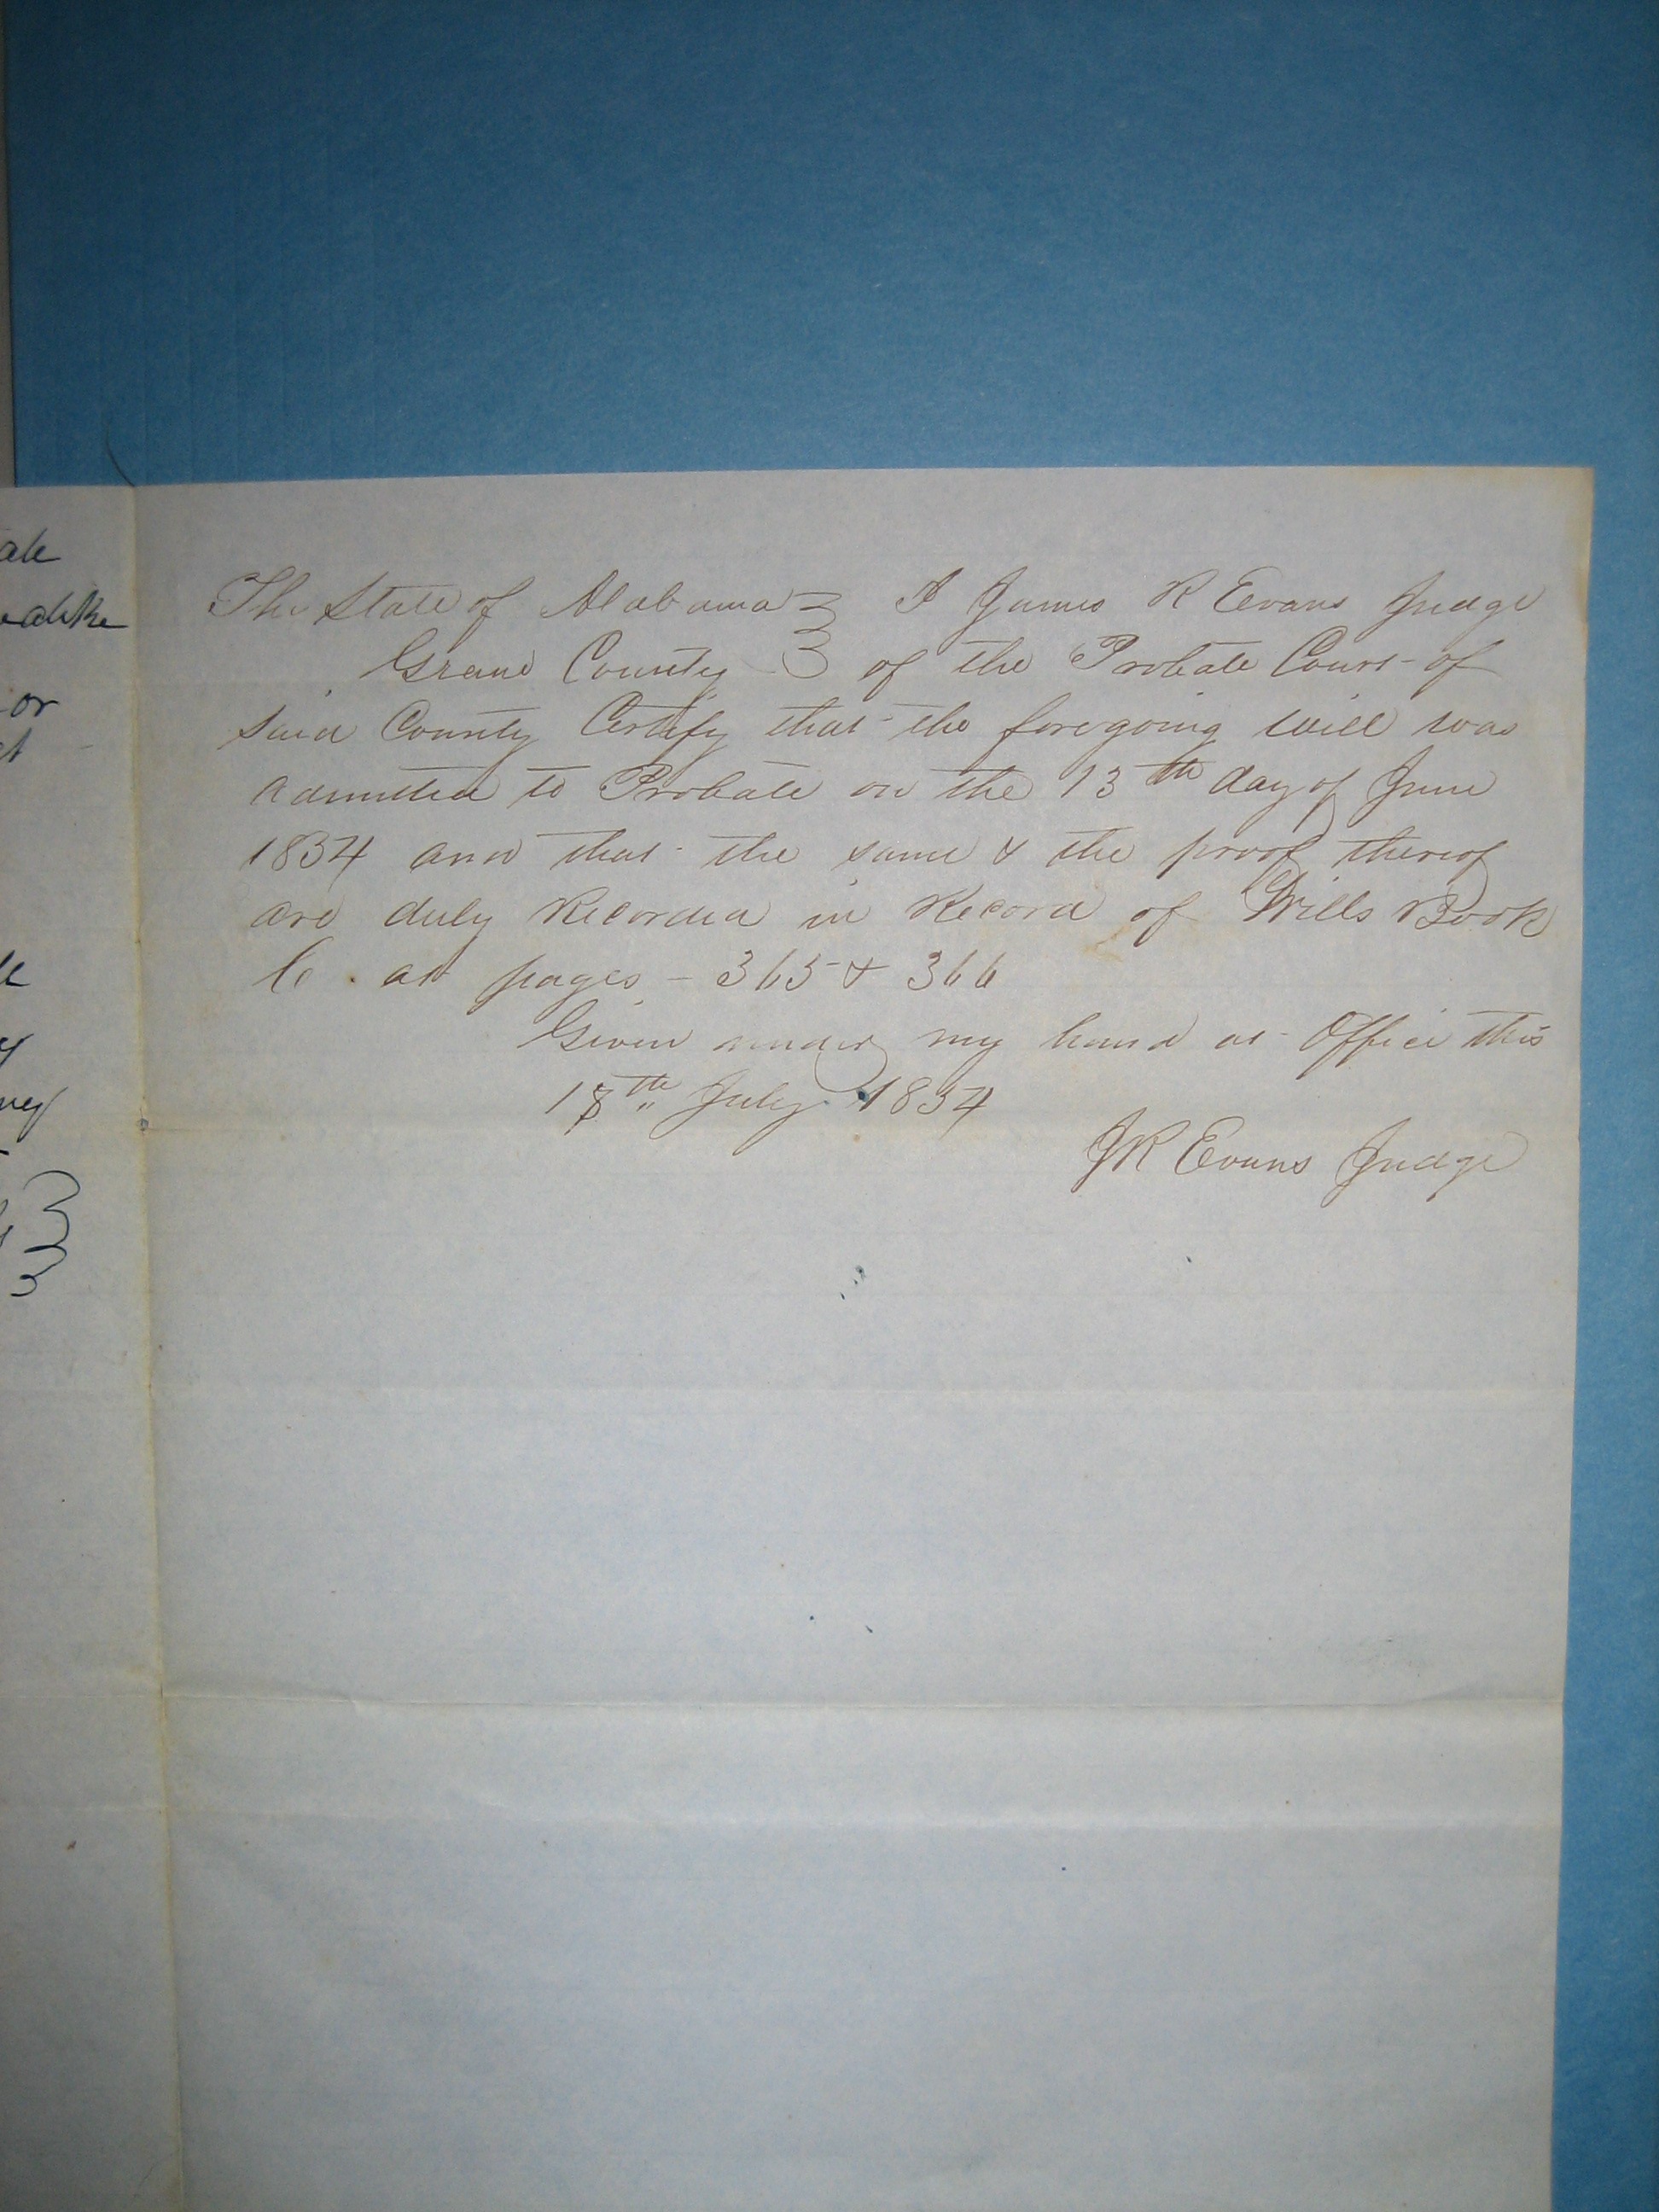 The State of Alabama } I James R Evans Judge
Greene County } of the Probate Court of
said County Certify that the foregoing will was
admitted to Probate on the 13th day of June
1854 and that the same & the proof thereof
are duly Recorded in Record of Wills Book
C at pages - 365 & 366
Given under my hand at Office this
July 1854
JR Evans Judge
or